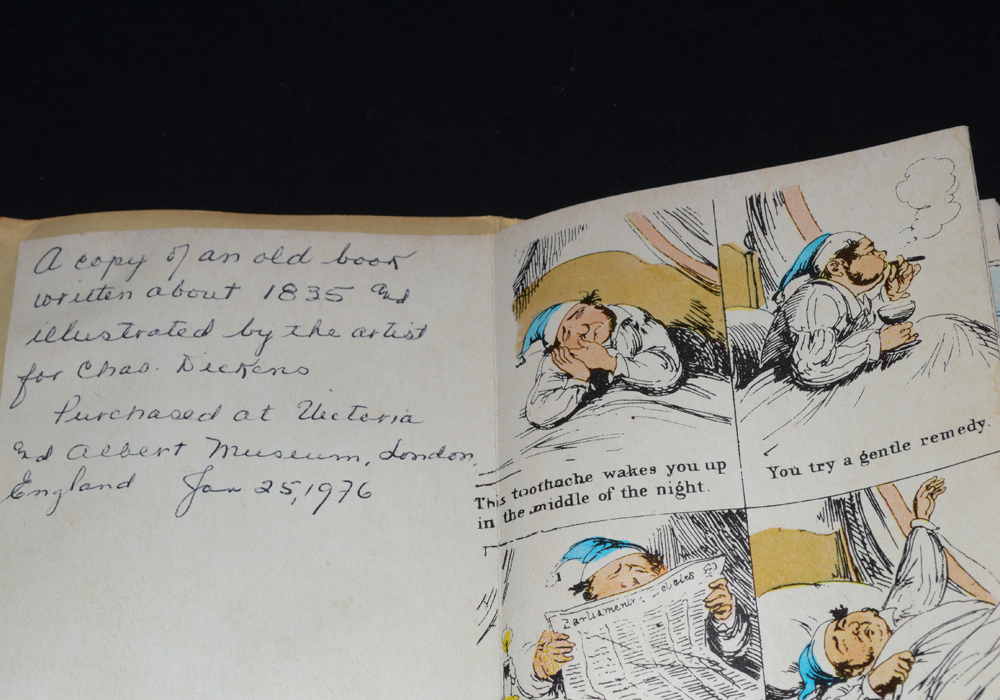 A copy of an old book
written about 1835 and
illustrated by the artist
for Chas. Dickens
Purchased at Victoria
and Albert Museum, London,
England Jan 25, 1976
This toothache wakes you up
in the middle of the night.
You try a gentle remedy.
Parliamentary